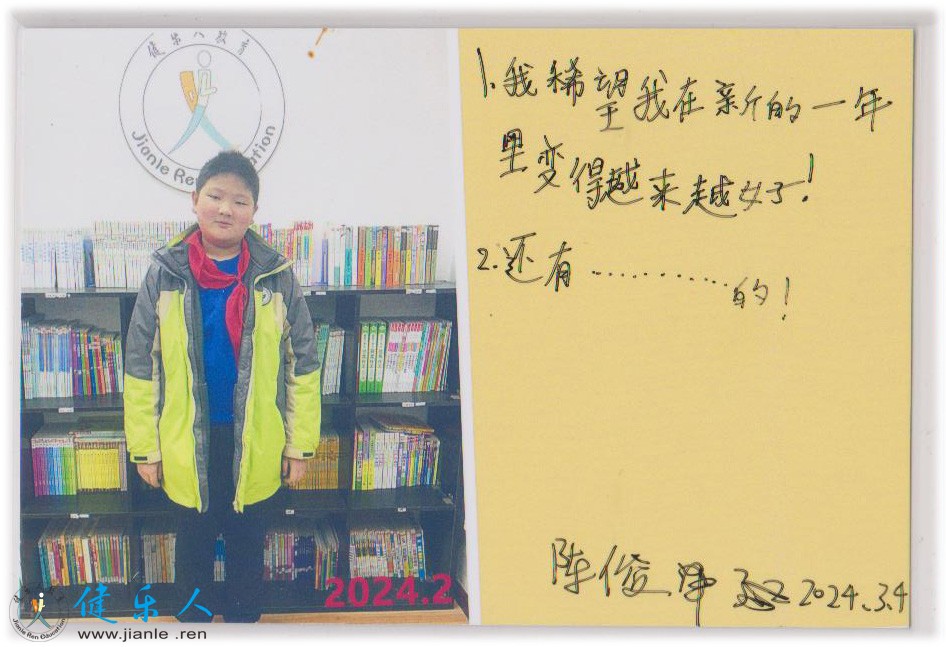 健乐人教育
Jianle Ren Education
1.我希望我在新的一年
里变得越来越好!
2.还有……………的!
陈俊 2024.3.4
2024.2
健乐人
Jianle Ren Education
www.jianle .ren